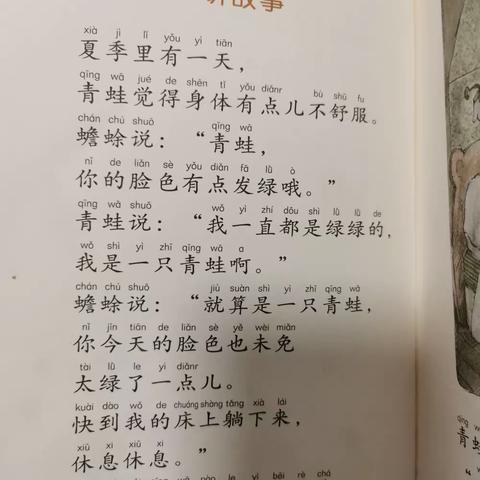 故事
xià jì lǐ yǒu yì tiān
夏季里有一天，
qīng wā jué de shēn tǐ yǒu diǎnr bù shū fu
青蛙觉得身体有点儿不舒服。
chán chú shuō qīng wā
蟾蜍说：“青蛙，
nǐ de liǎn sè yǒu diǎn fā lǜ ò
你的脸色有点发绿哦。”
qīng wā shuō wǒ yì zhí dōu shì lǜ lǜ de
青蛙说：“我一直都是绿绿的，
wǒ shì yì zhī qīng wā a
我是一只青蛙啊。”
chán chú shuō jiù suàn shì yì zhī qīng wā
蟾蜍说：“就算是一只青蛙，
nǐ jīn tiān de liǎn sè yě wèi miǎn
你今天的脸色也未免
tài lǜ le yì diǎnr
太绿了一点儿。
kuài dào wǒ de chuáng shàng tǎng xià lái
快到我的床上躺下来，
xiū xi xiū xi
休息休息。”
le yì bēi rè chá
qīng
青